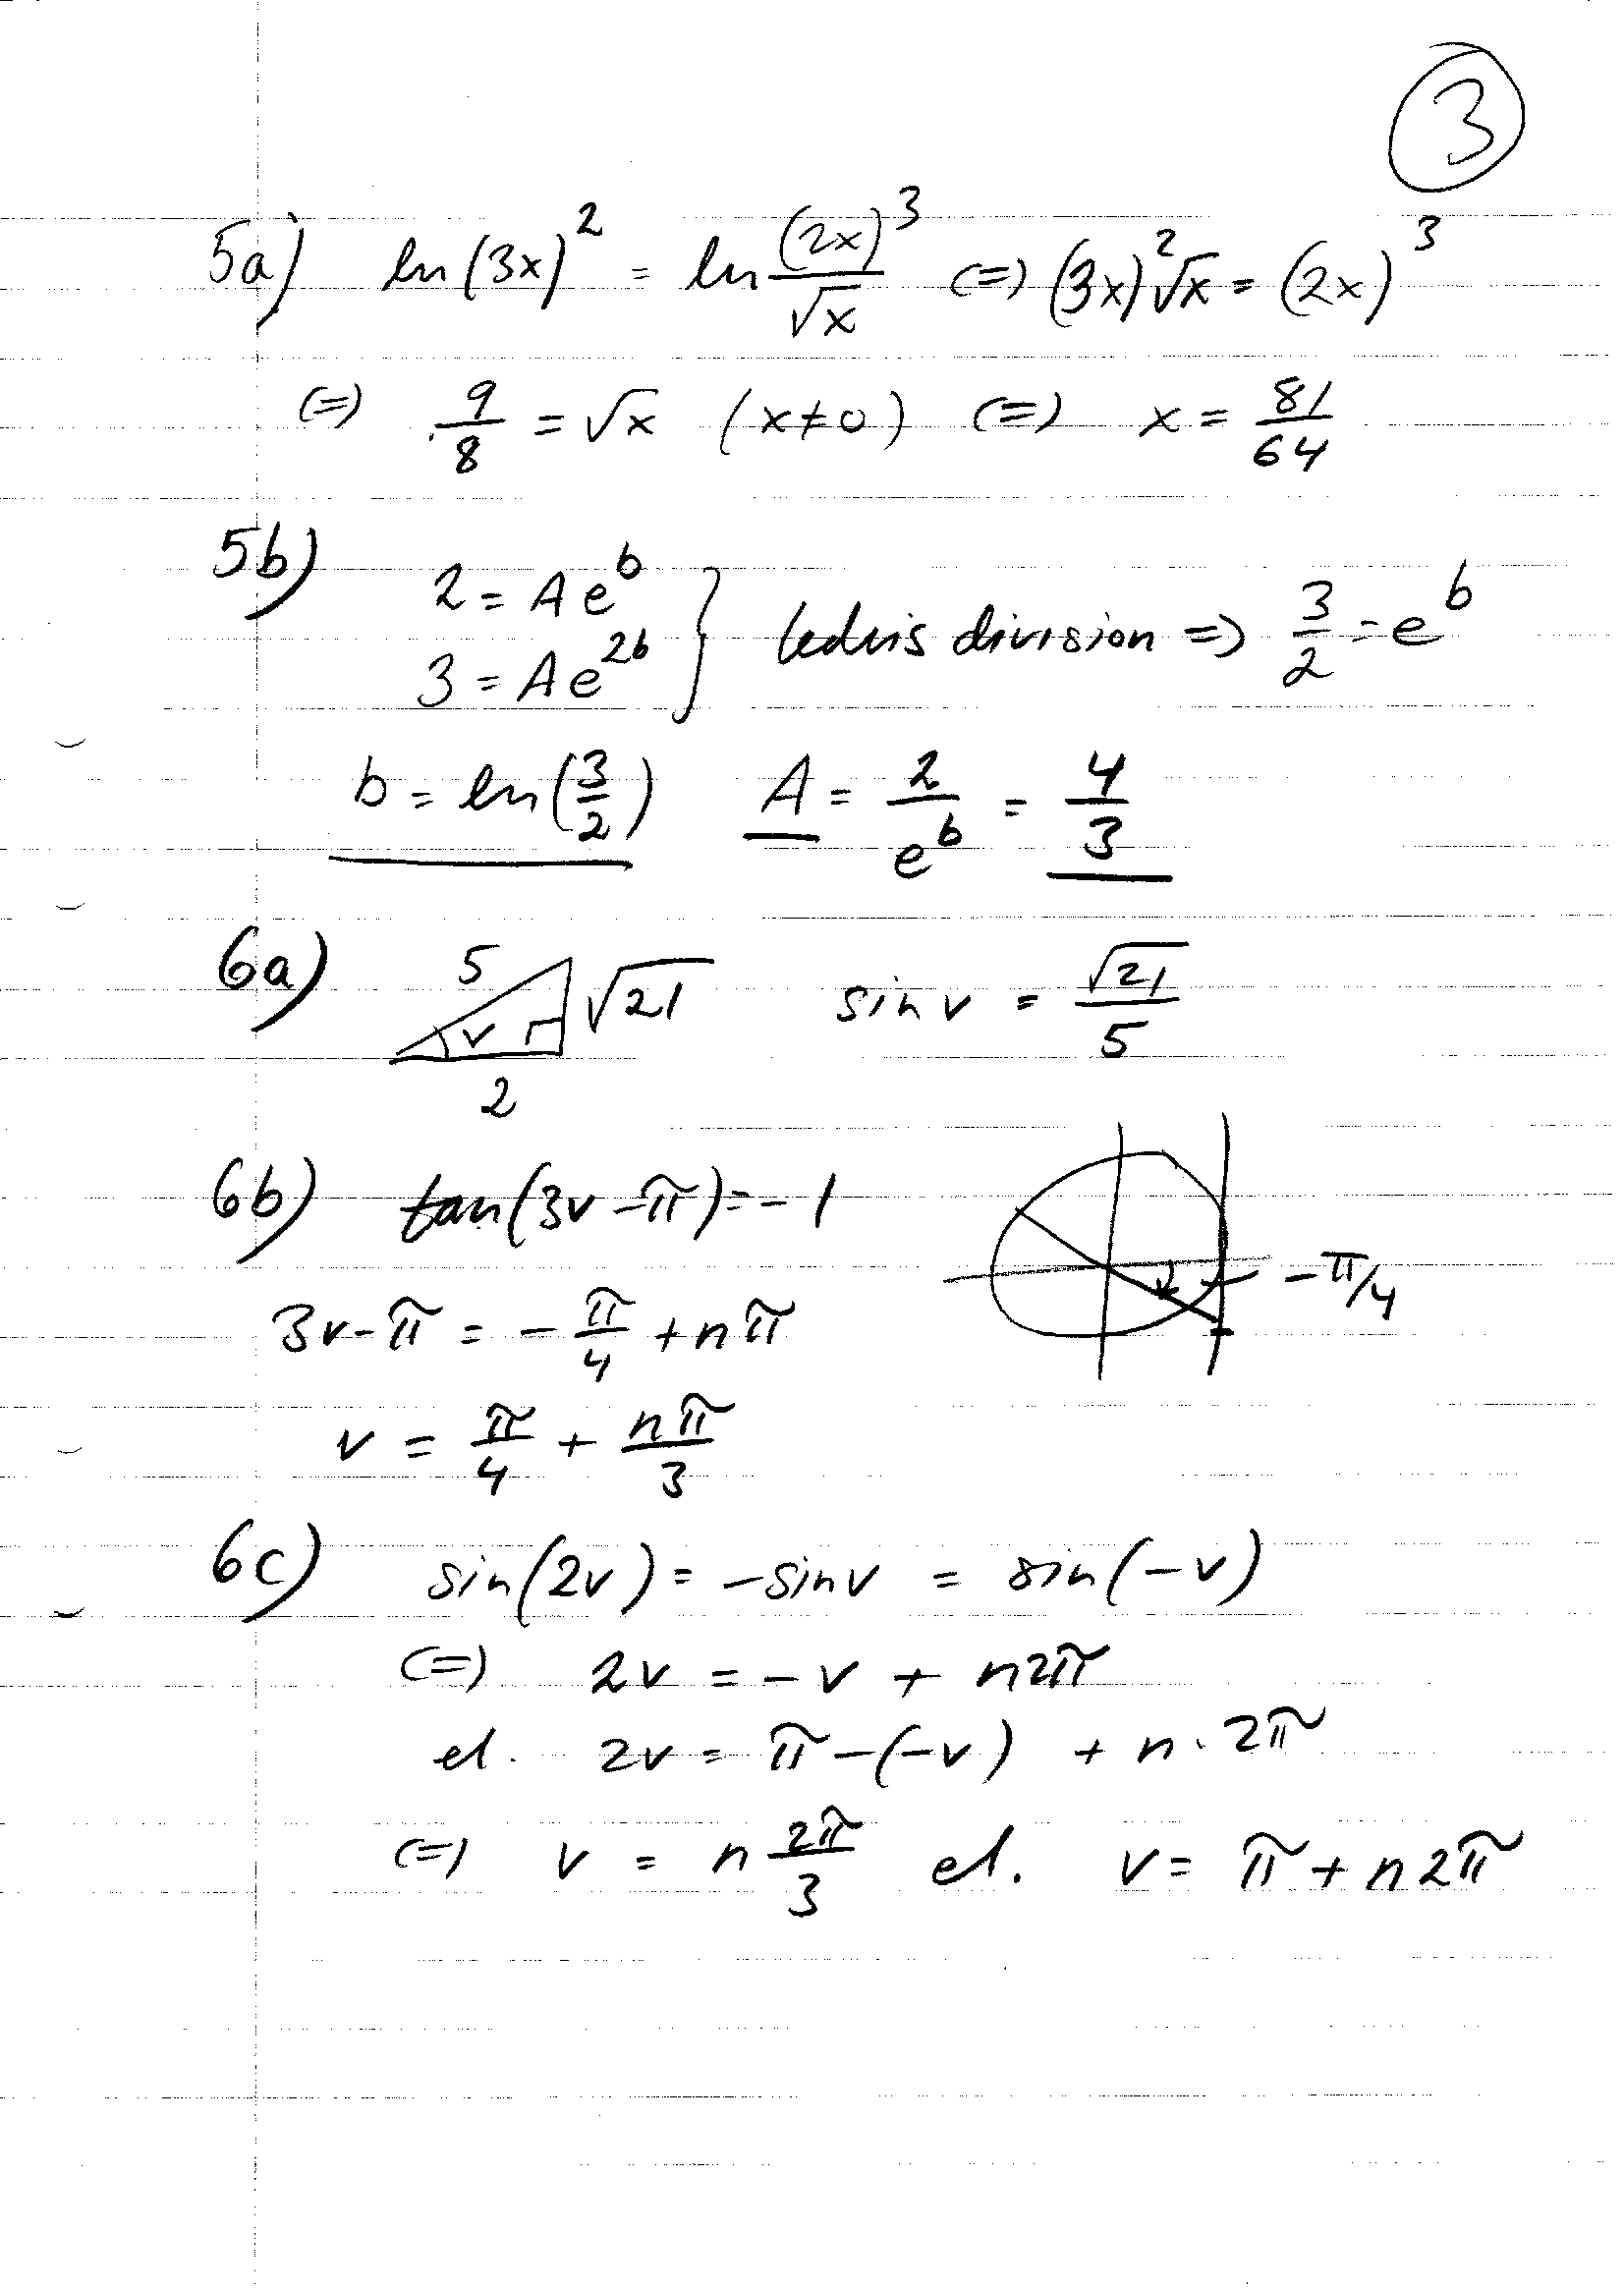 3
5a) ln(3x)² = ln (2x)³/√x (=) (3x)²√x = (2x)³
(=) 9/8 = √x (x≠0) (=) x = 81/64
5b) 2 = Ae^b
3 = Ae^2b } ledvis division => 3/2 = e^b
b = ln(3/2) A = 2/e^b = 4/3
6a) 5 v √21 2 sin v = √21/5
6b) tan(3v-π) = -1
-π/4
3v-π = -π/4 + nπ
v = π/4 + nπ/3
6c) sin(2v) = -sinv = sin(-v)
(=) 2v = -v + n2π
el. 2v = π-(-v) + n·2π
(=) v = n 2π/3 el. v = π + n2π